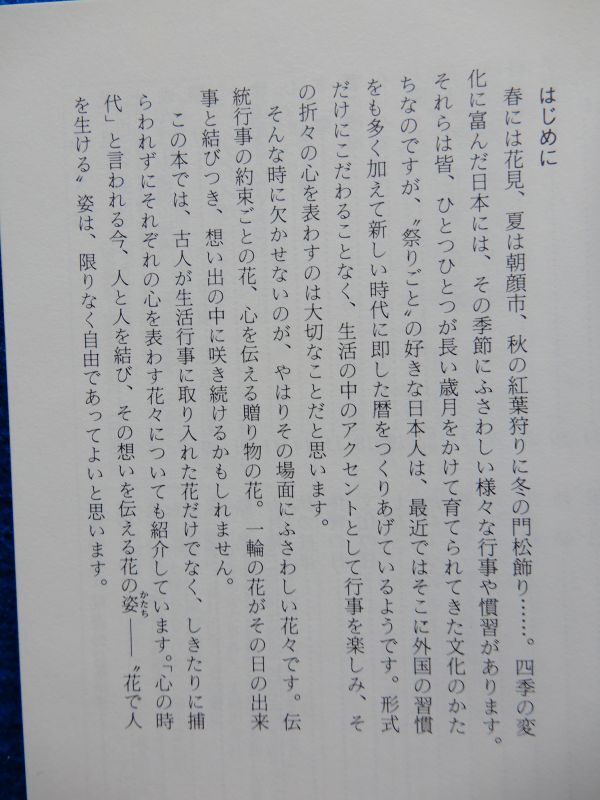 はじめに
春には花見、夏は朝顔市、秋の紅葉狩りに冬の門松飾り……。四季の変
化に富んだ日本には、その季節にふさわしい様々な行事や慣習があります。
それらは皆、ひとつひとつが長い歳月をかけて育てられてきた文化のかた
ちなのですが、〝祭りごと〟の好きな日本人は、最近ではそこに外国の習慣
をも多く加えて新しい時代に即した暦をつくりあげているようです。形式
だけにこだわることなく、生活の中のアクセントとして行事を楽しみ、そ
の折々の心を表わすのは大切なことだと思います。
そんな時に欠かせないのが、やはりその場面にふさわしい花々です。伝
統行事の約束ごとの花、心を伝える贈り物の花。一輪の花がその日の出来
事と結びつき、想い出の中に咲き続けるかもしれません。
この本では、古人が生活行事に取り入れた花だけでなく、しきたりに捕
らわれずにそれぞれの心を表わす花々についても紹介しています。「心の時
代」と言われる今、人と人を結び、その想いを伝える花の姿かたち――〝花で人
を生ける〟姿は、限りなく自由であってよいと思います。